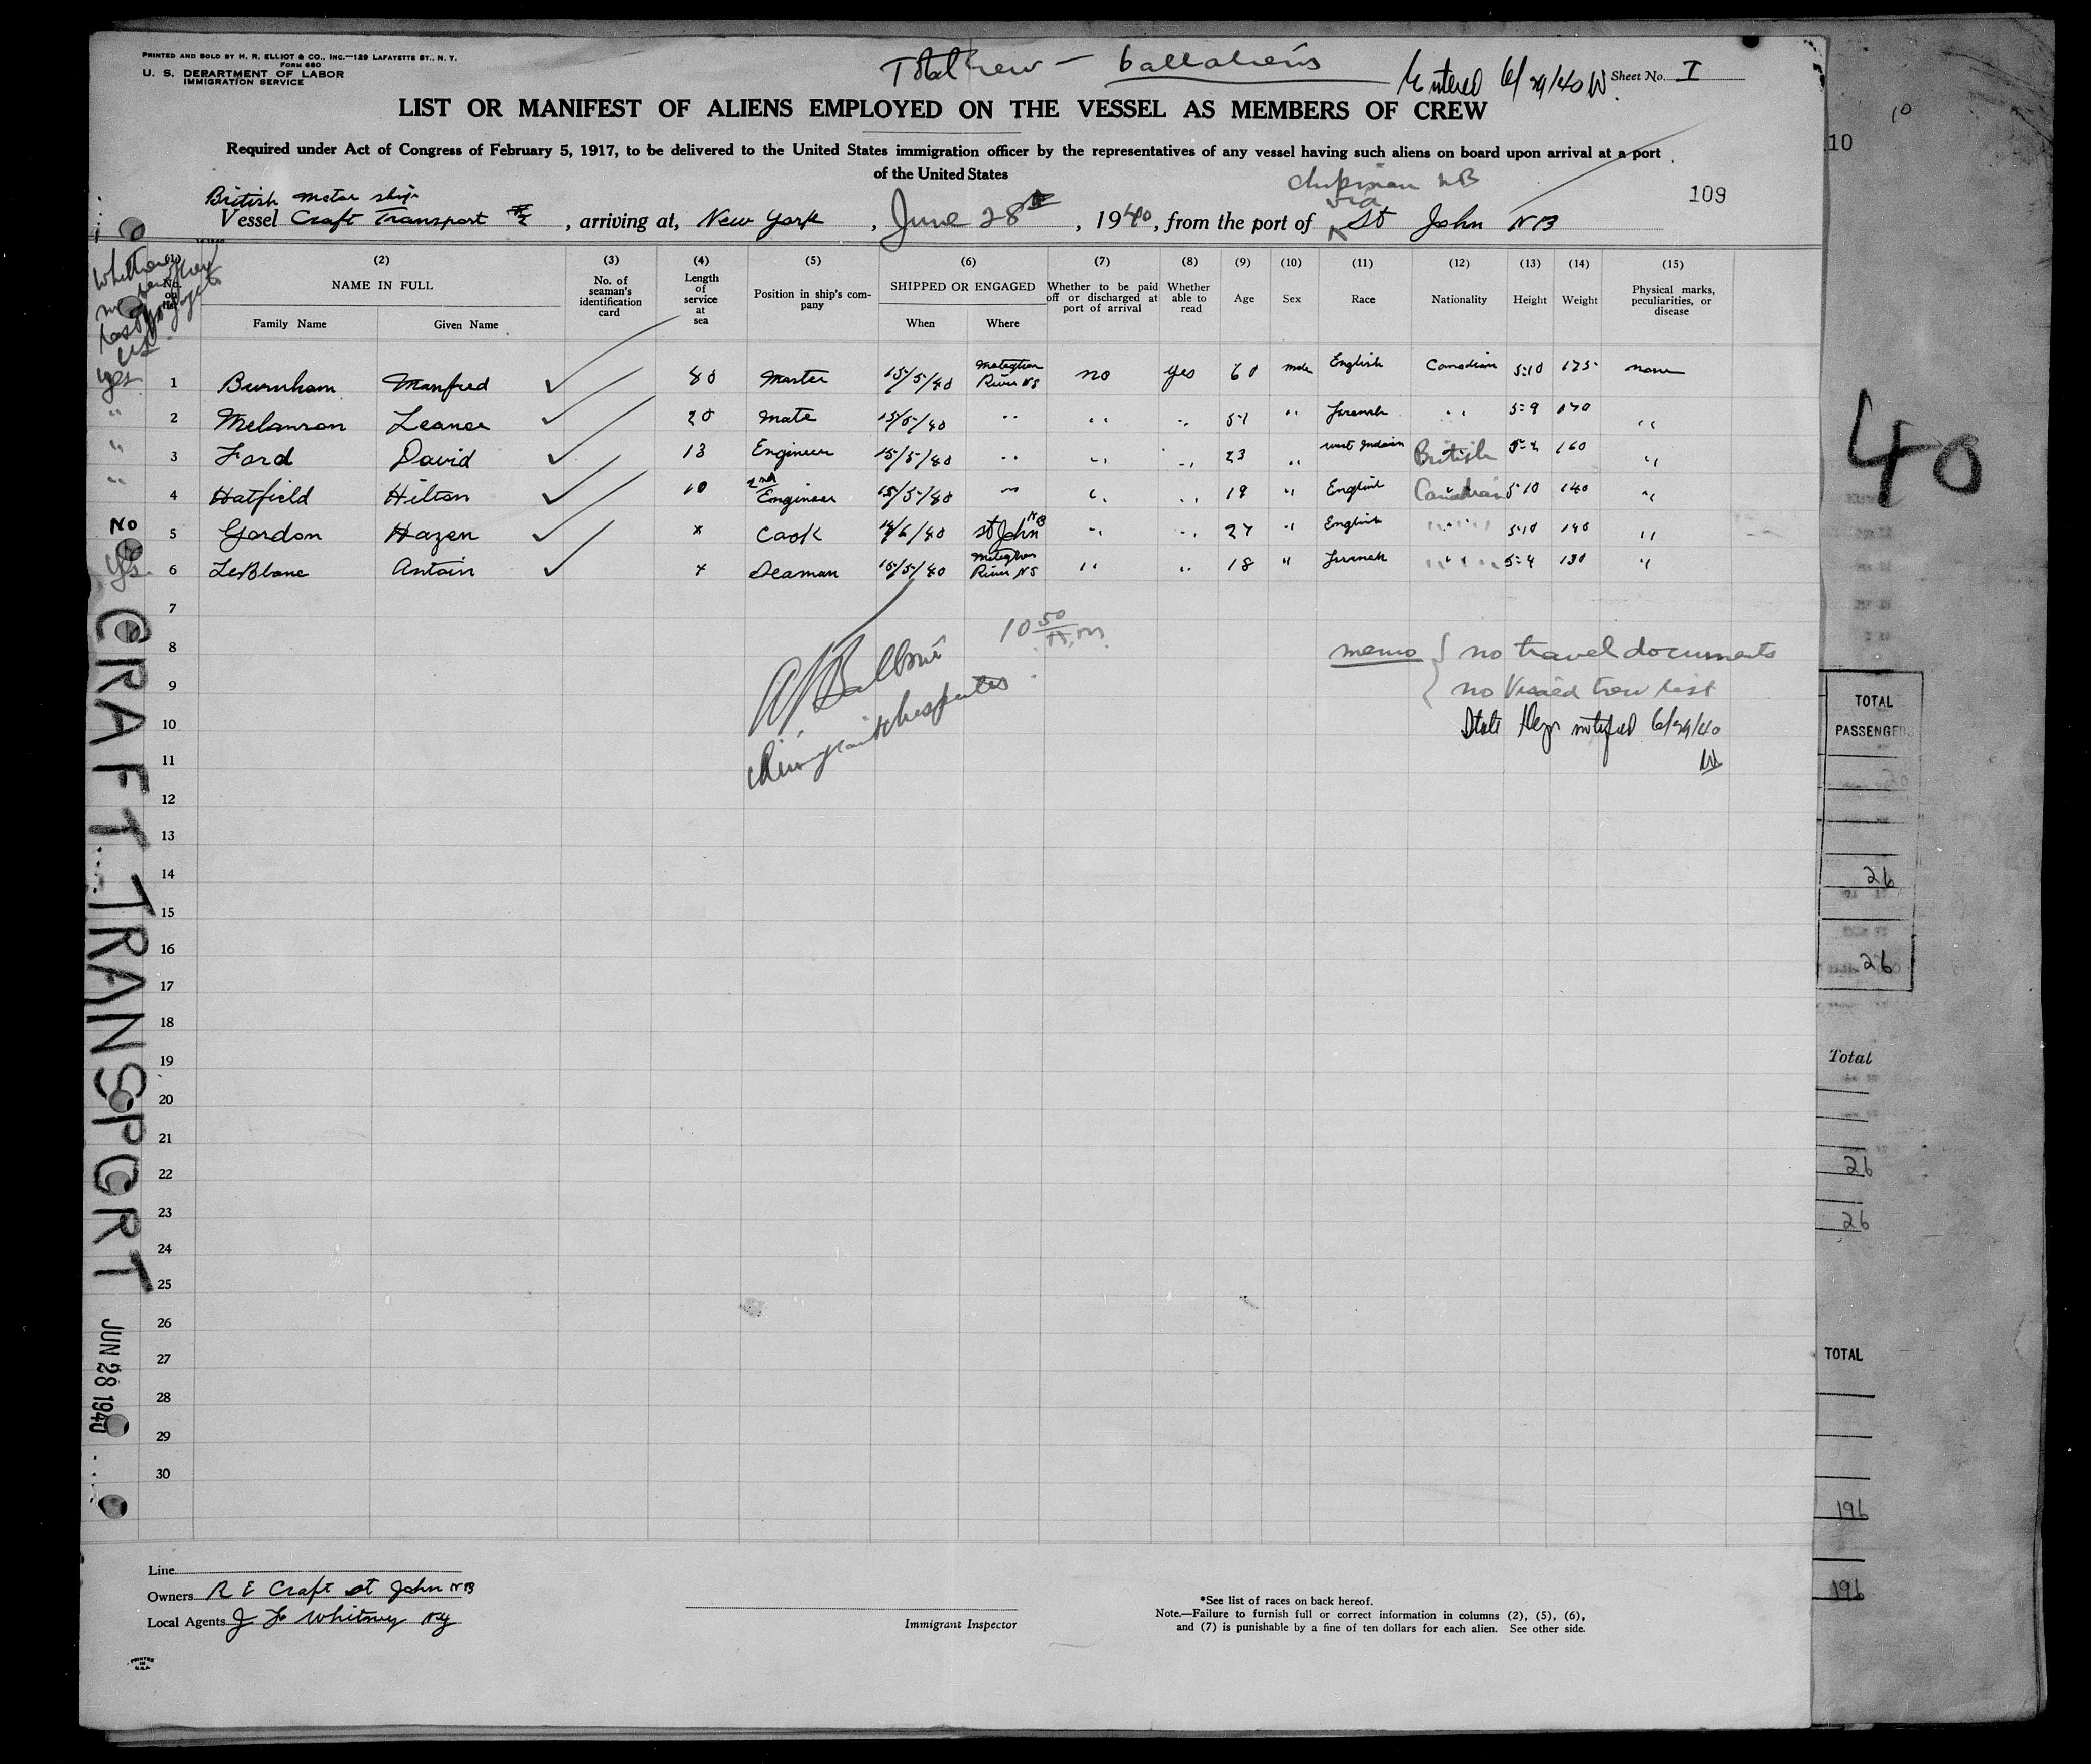 PRINTED AND SOLD BY H. R. ELLIOT & CO., INC.—129 LAFAYETTE ST., N. Y.
FORM 680
U. S. DEPARTMENT OF LABOR
IMMIGRATION SERVICE
Total Crew — 6 all aliens
Entered 6/29/40 W
Sheet No. I
LIST OR MANIFEST OF ALIENS EMPLOYED ON THE VESSEL AS MEMBERS OF CREW
Required under Act of Congress of February 5, 1917, to be delivered to the United States immigration officer by the representatives of any vessel having such aliens on board upon arrival at a port
of the United States
British motor ship
via
109
Vessel Craft Transport #2, arriving at, New York, June 28th, 1940, from the port of St John NB
(2) (3) (4) (5) (6) (7) (8) (9) (10) (11) (12) (13) (14) (15)
NAME IN FULL
Family Name Given Name
No. of seaman's identification card
Length of service at sea
Position in ship's company
SHIPPED OR ENGAGED
When Where
Whether to be paid off or discharged at port of arrival
Whether able to read
Age
Sex
Race
Nationality
Height
Weight
Physical marks, peculiarities, or disease
yes 1 Burnham Manfred 80 Master 15/5/40 Meteghan River NS no yes 60 male English Canadian 5-10 175 none
" 2 Melanson Leance 20 Mate 15/5/40 " " " 51 " French " 5-9 170 "
" 3 Ford David 13 Engineer 15/5/40 " " " 23 " West Indian British 160 "
" 4 Hatfield Hilton 10 2nd Engineer 15/5/40 " " " 19 " English Canadian 5-10 140 "
No 5 Gordon Hazen x Cook /6/40 St John NB " " 27 " English " 5-10 140 "
Yes 6 LeBlanc Antoin x Seaman 15/5/40 Meteghan River NS " " 18 " French " 5-4 130 "
7
8
9
10
11
12
13
14
15
16
17
18
19
20
21
22
23
24
25
26
27
28
29
30
10 50 A.M.
memo { no travel documents
no Visaed Crew list
State Dept notified 6/29/40
W
CRAFT TRANSPORT
JUN 28 1940
Line
Owners R E Craft St John NB
Local Agents J F Whitney NY
Immigrant Inspector
*See list of races on back hereof.
Note.—Failure to furnish full or correct information in columns (2), (5), (6),
and (7) is punishable by a fine of ten dollars for each alien. See other side.
PRINTED
IN
U.S.A.
10
10
40
TOTAL
PASSENGERS
26
26
Total
26
26
TOTAL
196
196